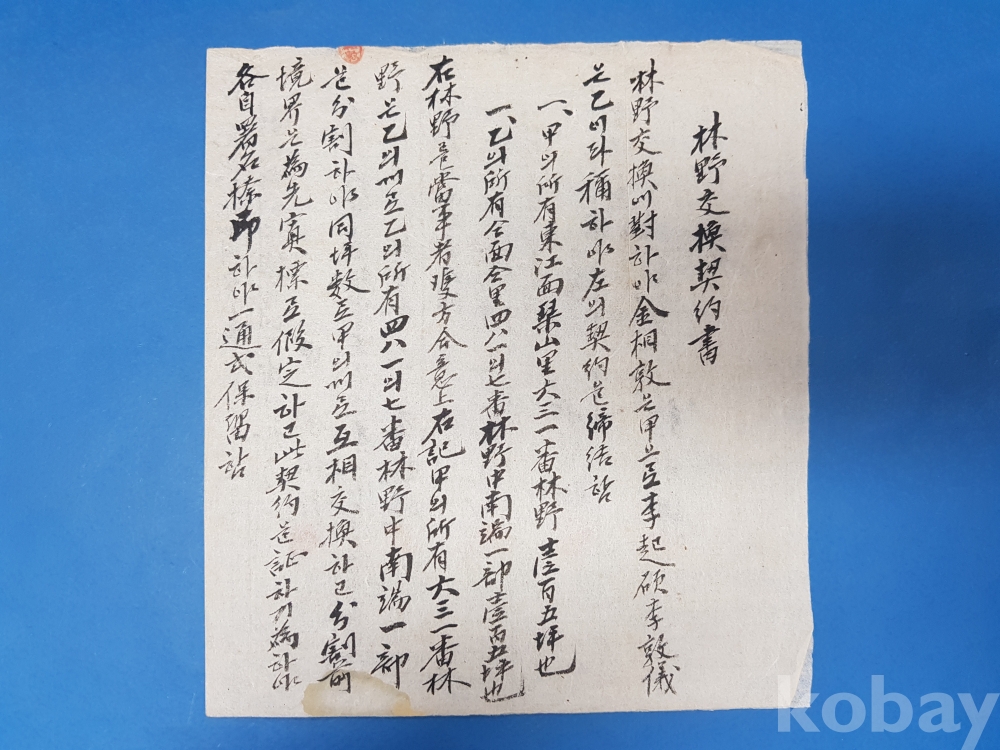 林野交換契約書
林野交換에對하야金相敦은甲으로李起碩李敦儀
은乙이라稱하야左의契約을締結함
一、甲의所有東江面梁山里大三一番林野壹百五坪也
一、乙의所有仝面仝里四八一의七番林野中南端一部壹百五坪也
右林野를當事者雙方合意上右記甲의所有大三一番林
野은乙의게로乙의所有四八一의七番林野中南端一部
을分割하야同坪数로甲의게로互相交換하고分割前
境界은為先寘標로假定하고此契約을証하기為하야
各自署名捺印하야一通式保留함
kobay